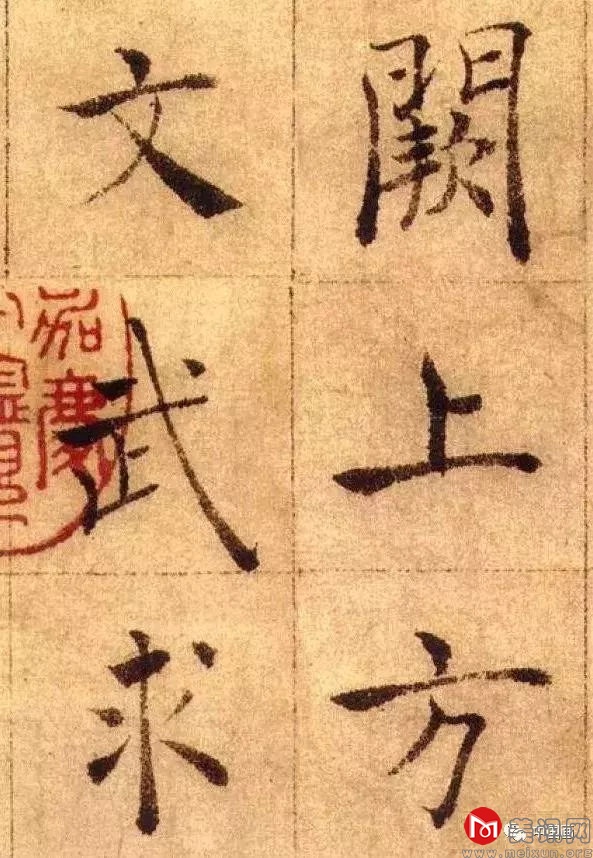 阙上方
文武求
美迅网
www.meixun.org